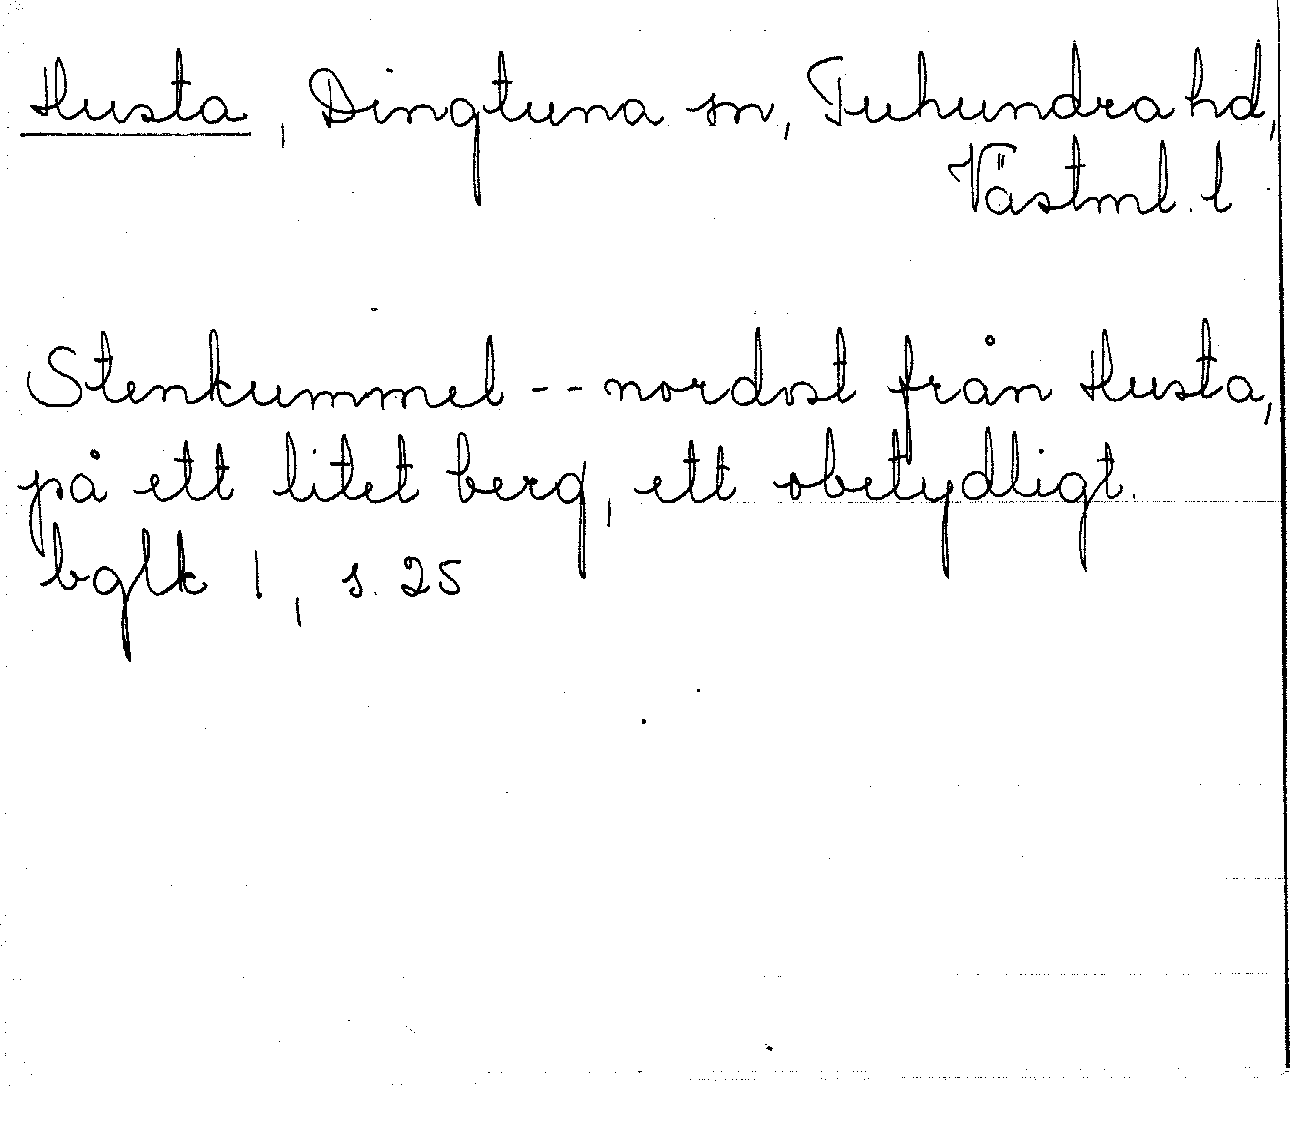 Husta, Dingtuna sn, Tuhundra hd,
Västml. l
Stenkummel -- nordost från Husta,
på ett litet berg, ett obetydligt.
bglk 1, s. 25